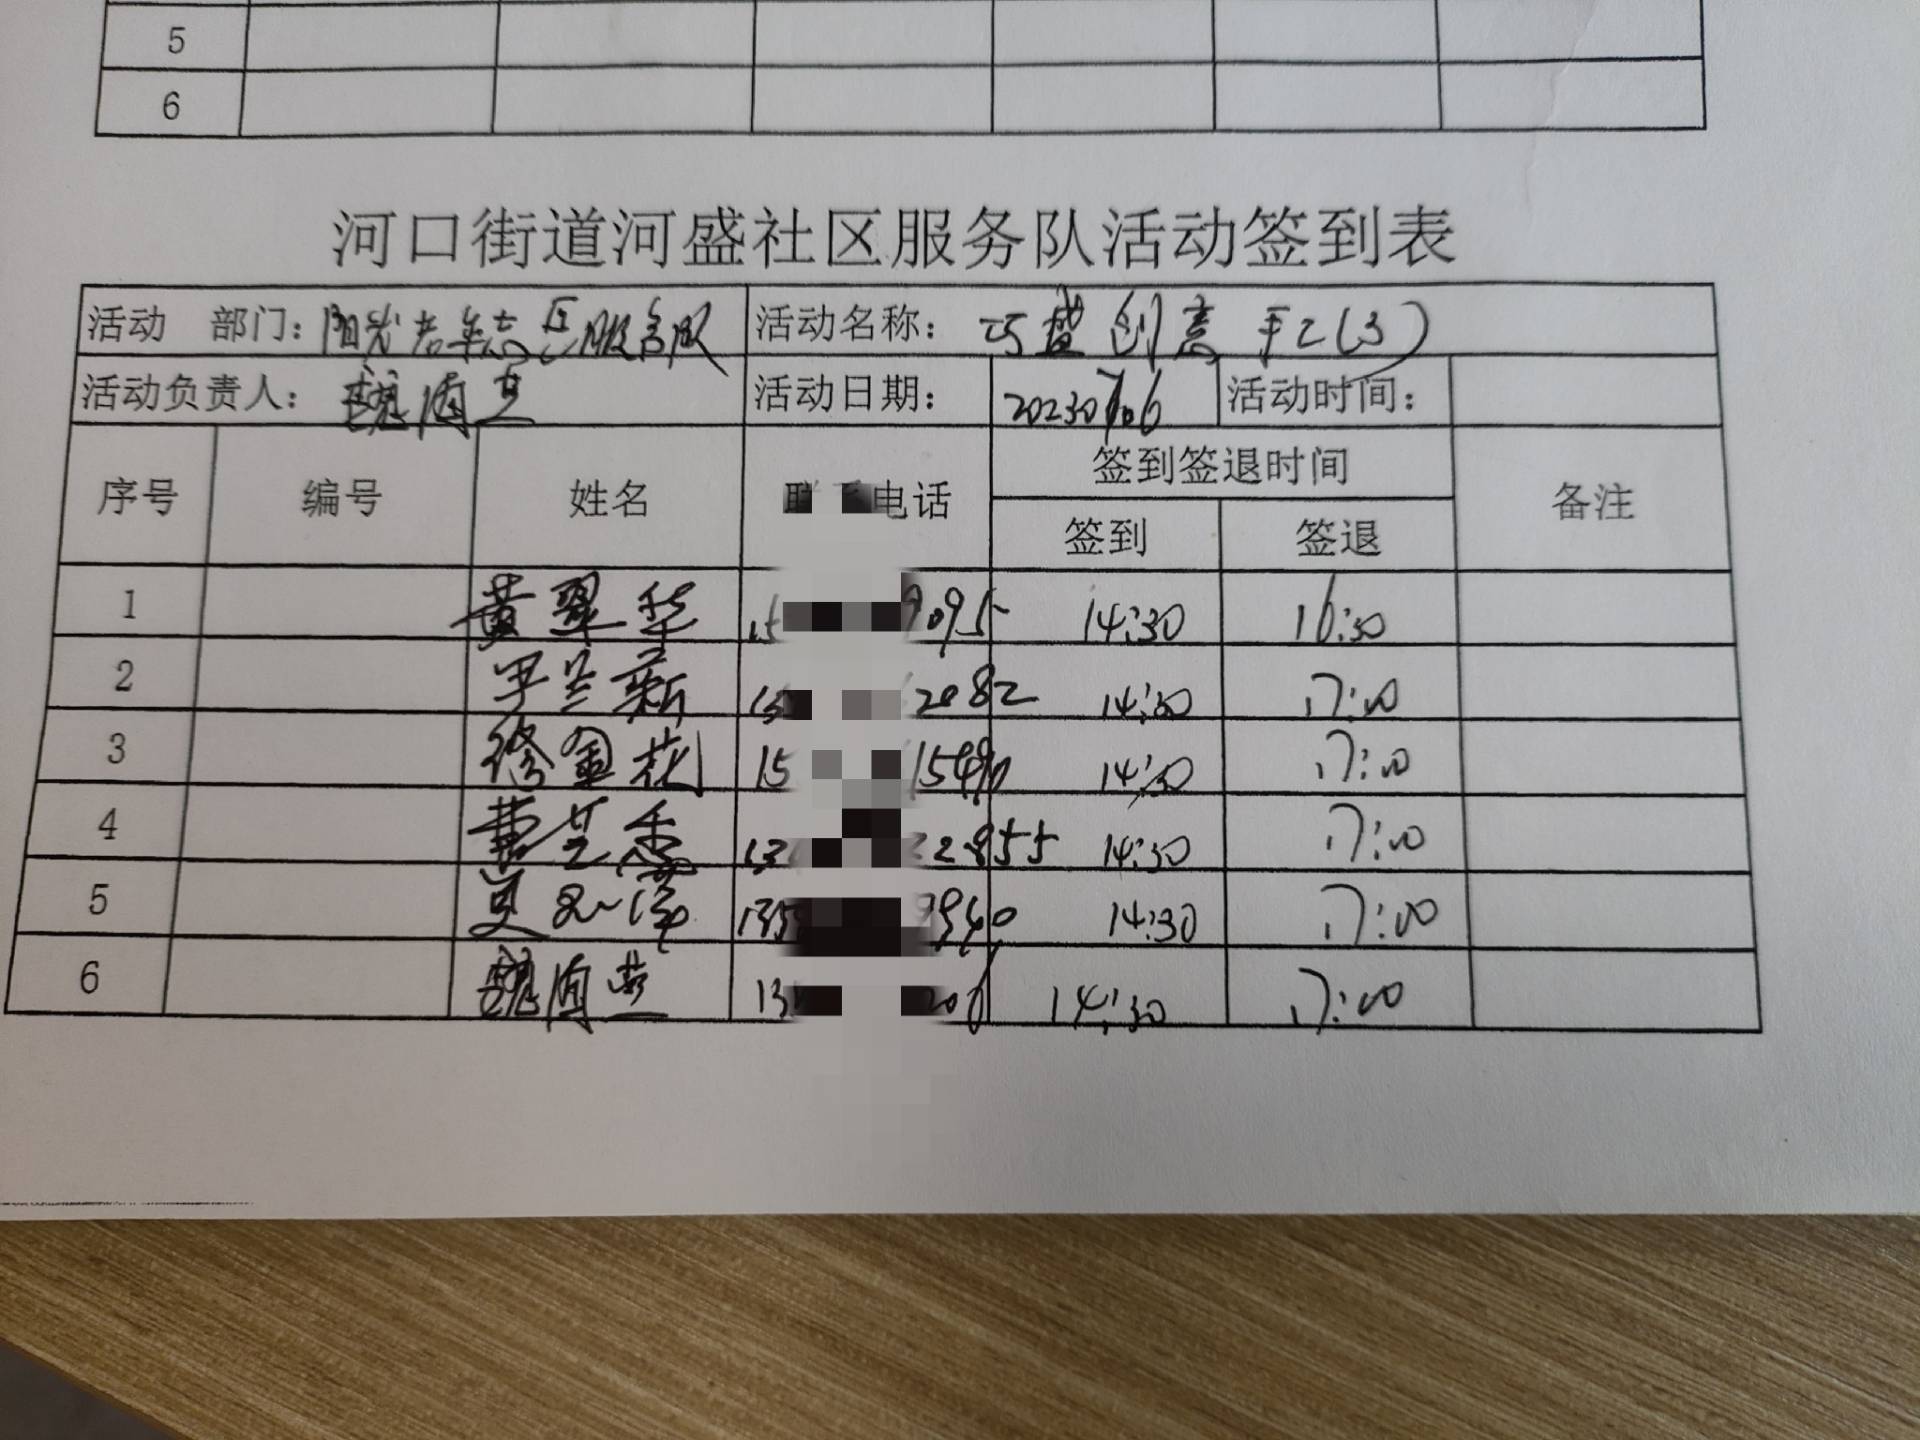 5
6
河口街道河盛社区服务队活动签到表
活动 部门: 阳光老年志愿服务队 活动名称: 巧盛创意手工(3)
活动负责人: 活动日期: 20230706 活动时间:
序号 编号 姓名 电话 签到签退时间 备注
签到 签退
1 黄翠华 15 9095 14:30 16:30
2 兰新 2082 14:30 17:00
3 修金花 15 1549 14:30 17:00
4 芝香 13 2855 14:30 17:00
5 135 14:30 17:00
6 13 14:30 17:00